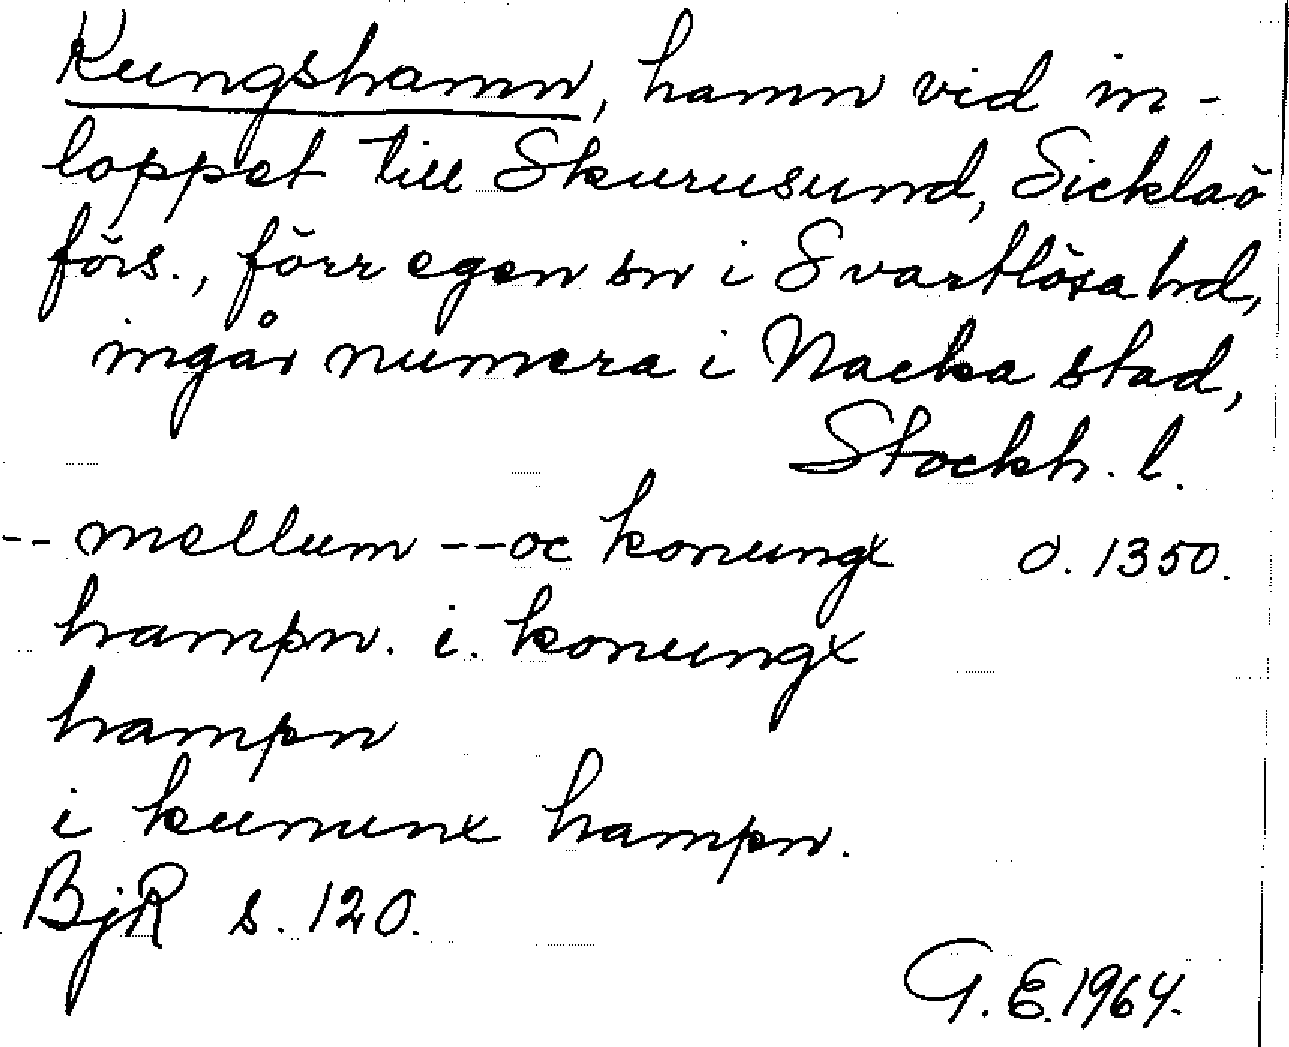 Kungshamn, hamn vid in-
loppet till Skurusund, Sicklaö
förs., förr egen sn i Svartlösa hd,
ingår numera i Nacka stad,
Stockh. l.
-- mellum -- oc konungx ö. 1350.
hampn. i. konungx
hampn
i kununx hampn.
BjR s. 120.
G. E. 1964.